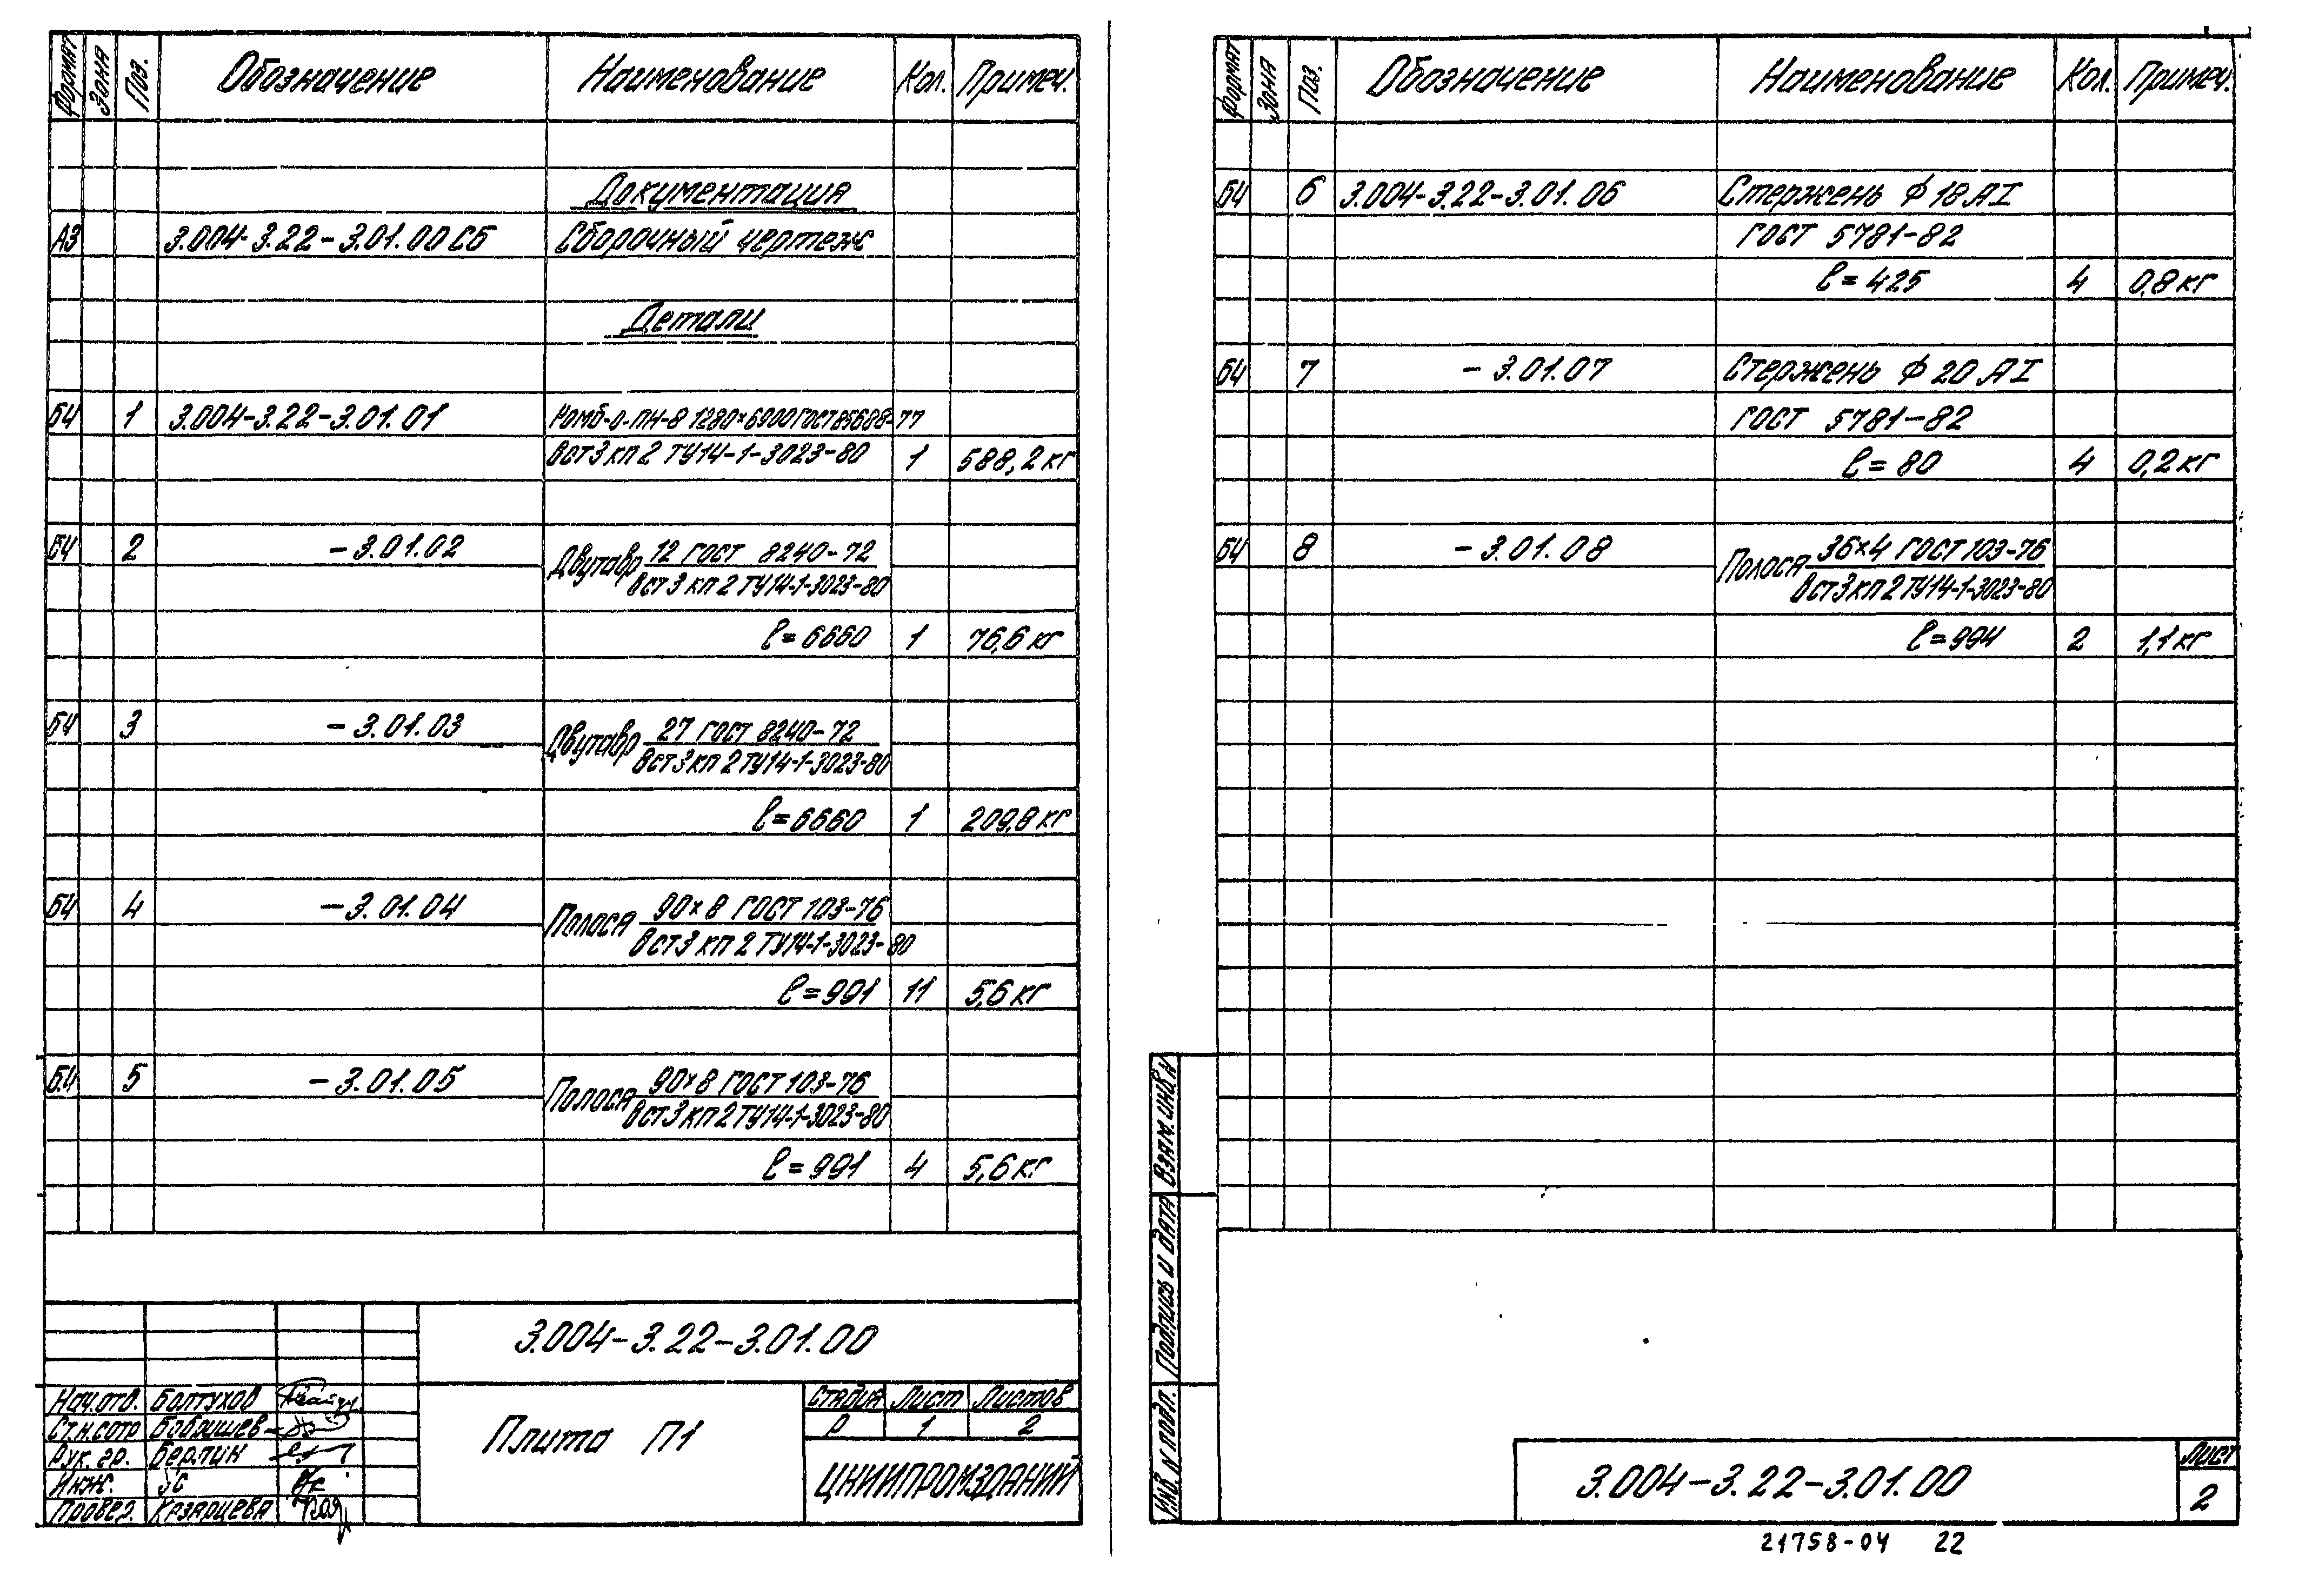 Формат Зона Поз. Обозначение Наименование Кол. Примеч.
Документация
А3 3.004-3.22-3.01.00 СБ Сборочный чертеж
Детали
БЧ 1 3.004-3.22-3.01.01 Ромб-О-ПН-8 1280×6900 ГОСТ 85688-77
ВСт3кп2 ТУ14-1-3023-80 1 588,2 кг
БЧ 2 -3.01.02 Двутавр 12 ГОСТ 8240-72
ВСт3кп2 ТУ14-1-3023-80
ℓ=6660 1 76,6 кг
БЧ 3 -3.01.03 Двутавр 27 ГОСТ 8240-72
ВСт3кп2 ТУ14-1-3023-80
ℓ=6660 1 209,8 кг
БЧ 4 -3.01.04 Полоса 90×8 ГОСТ 103-76
ВСт3кп2 ТУ14-1-3023-80
ℓ=991 11 5,6 кг
БЧ 5 -3.01.05 Полоса 90×8 ГОСТ 103-76
ВСт3кп2 ТУ14-1-3023-80
ℓ=991 4 5,6 кг
3.004-3.22-3.01.00
Нач.отд. Болтухов
Ст.н.сотр Бабушев
Рук. гр. Берлин
Инж.
Провер. Казарцева
Плита П1
Стадия Лист Листов
Р 1 2
ЦНИИПРОМЗДАНИЙ
Формат Зона Поз. Обозначение Наименование Кол. Примеч.
БЧ 6 3.004-3.22-3.01.06 Стержень Ф 18 АI
ГОСТ 5781-82
ℓ=425 4 0,8 кг
БЧ 7 -3.01.07 Стержень Ф 20 АI
ГОСТ 5781-82
ℓ=80 4 0,2 кг
БЧ 8 -3.01.08 Полоса 36×4 ГОСТ 103-76
ВСт3кп2 ТУ14-1-3023-80
ℓ=994 2 1,1 кг
Взам. инв. N
Подпись и дата
Инв. N подл.
3.004-3.22-3.01.00
Лист
2
21758-04 22